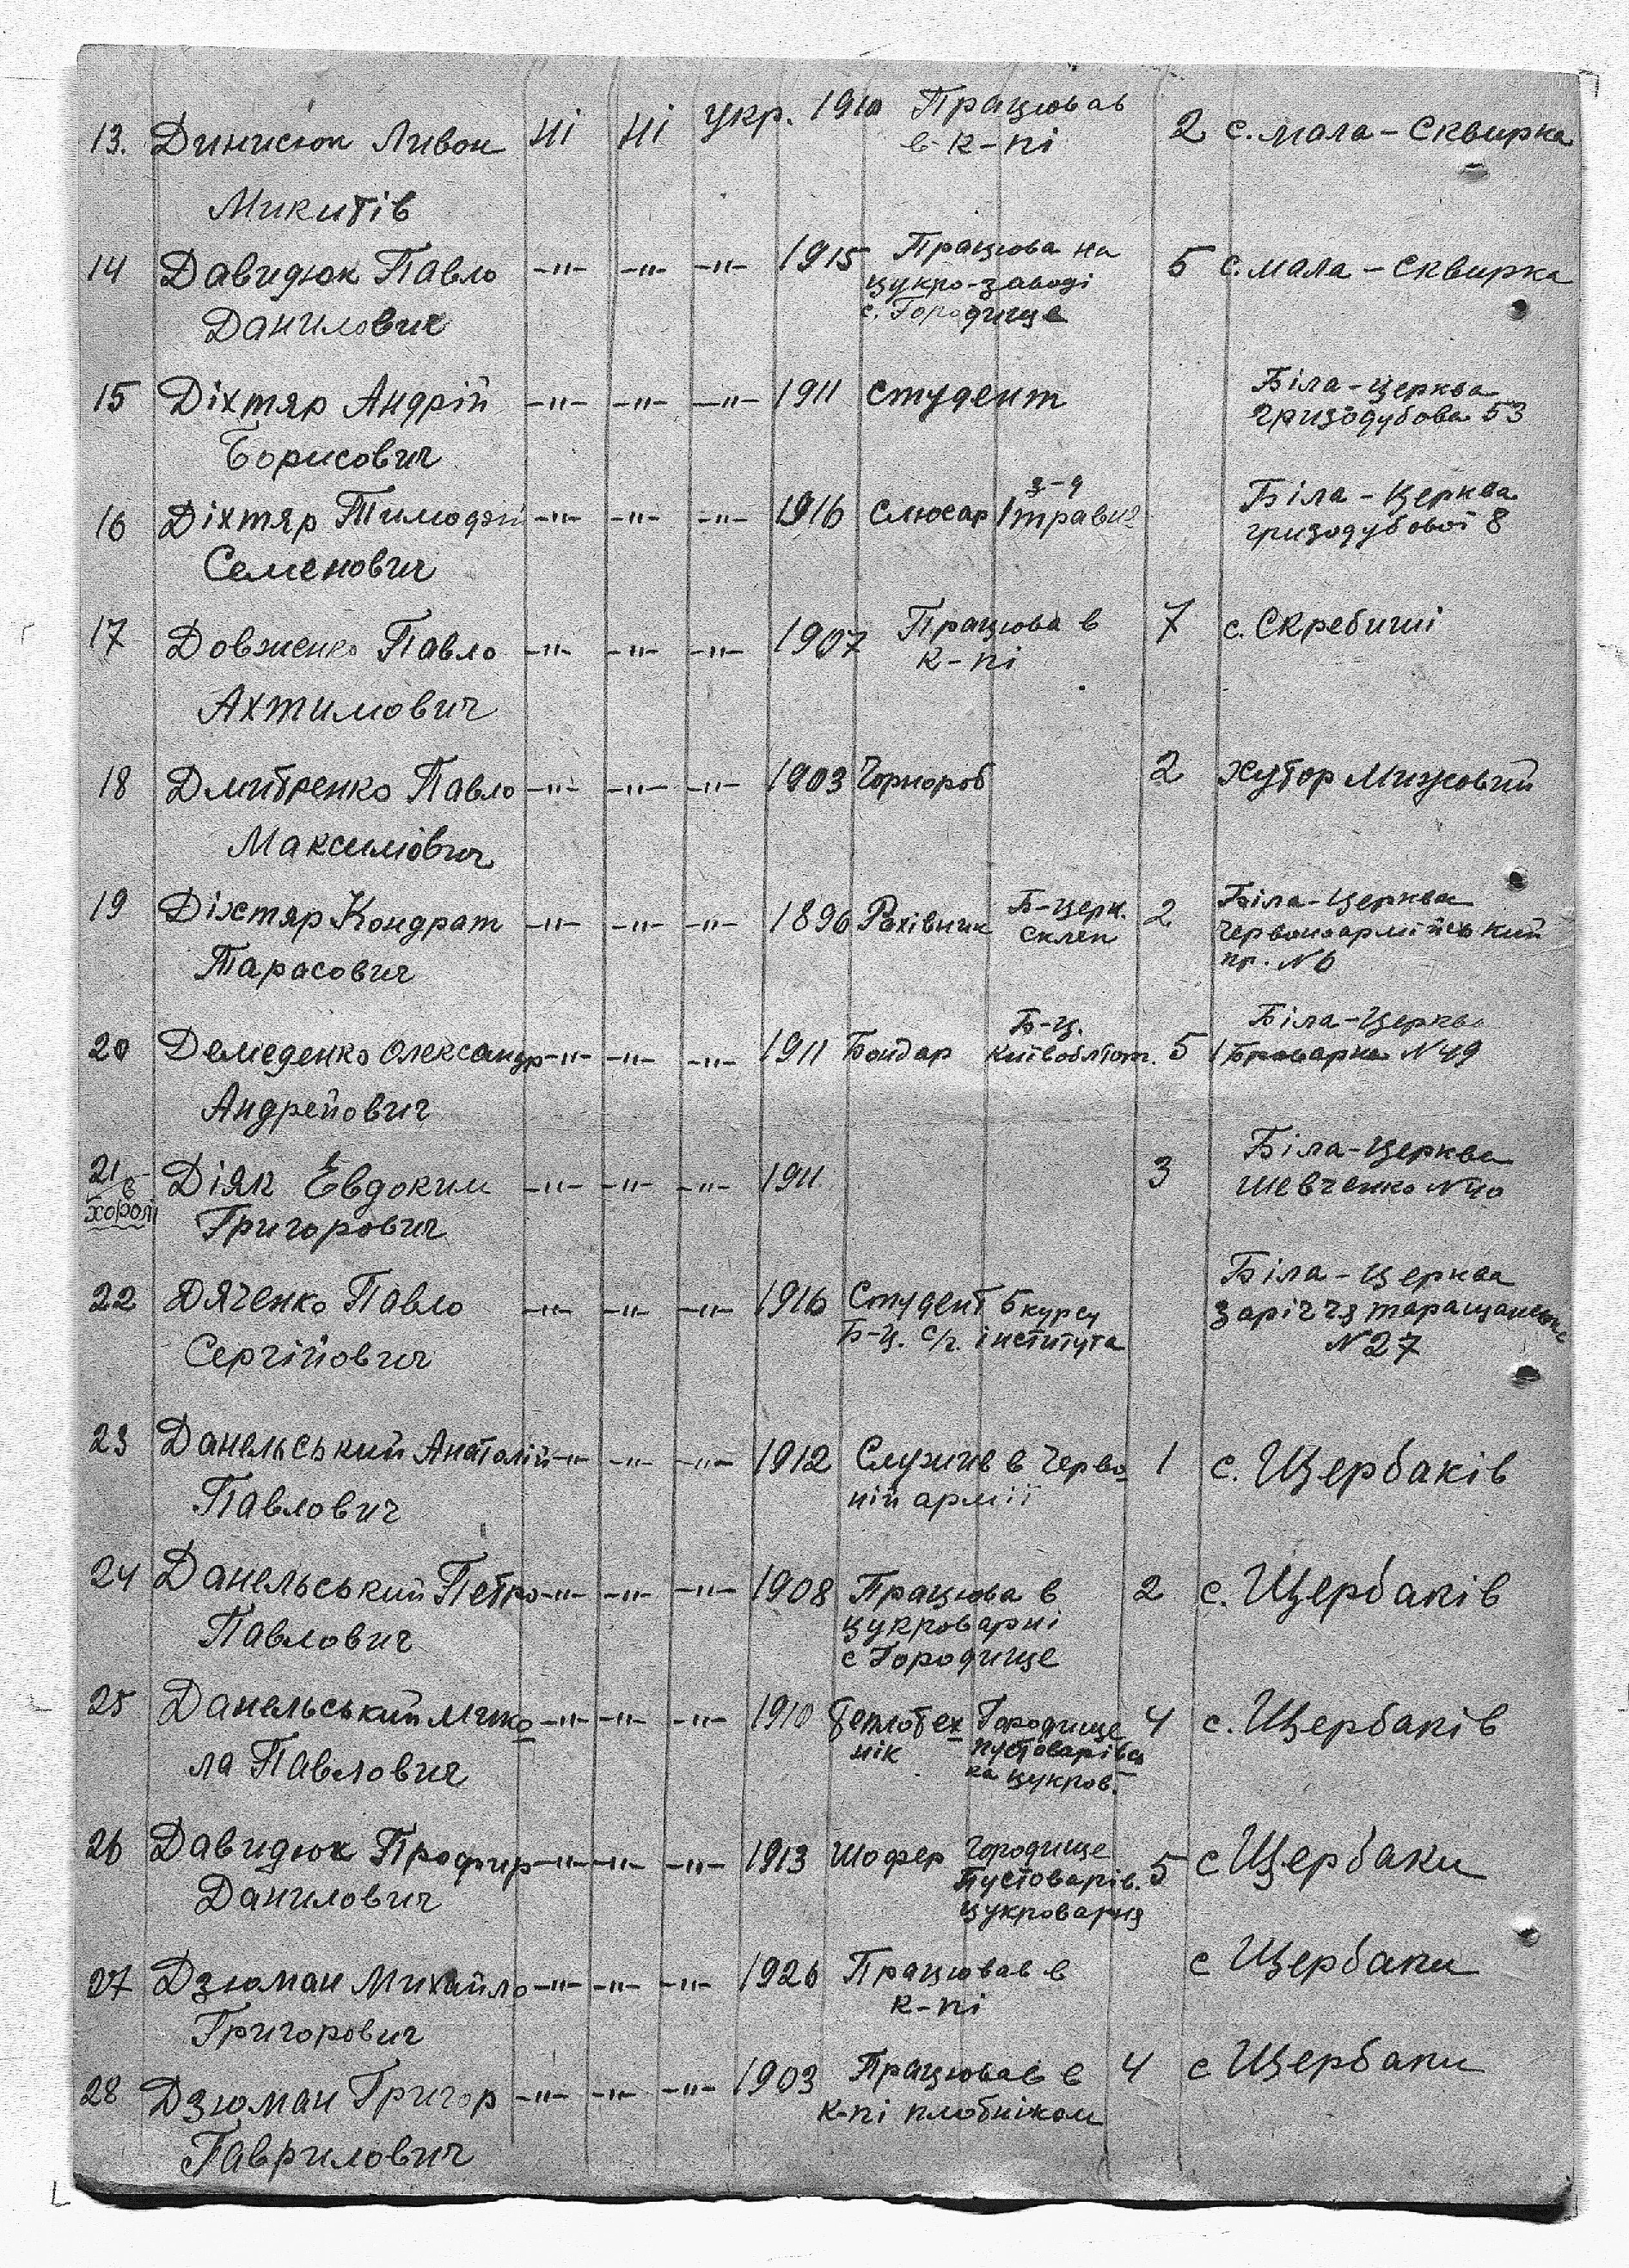 13. Динисюк Ливон ні ні укр. 1910 Працював 2 с. мала-Сквирка
в к-пі
Микитів
14 Давидюк Павло -"- -"- -"- 1915 Працюва на 5 с. мала-Сквирка
цукро-заводі
Данилович с. Городище
15 Діхтяр Андрій -"- -"- -"- 1911 студент Біла-Церква
Гризодубова 53
Борисович
з-д
16 Діхтяр Тимофій -"- -"- -"- 1916 Слюсар 1 травня Біла-Церква
гризодубової 8
Семенович
17 Довженко Павло -"- -"- -"- 1907 Працюва в 7 с. Скребиші
к-пі
Ахтимович
18 Дмитренко Павло -"- -"- -"- 1903 Чорнороб 2 хутор
Максимович
19 Діхтяр Кондрат -"- -"- -"- 1896 Рахівник Б-церк. 2 Біла-Церква
склеп Червоноармійський
Тарасович пр. N 6
20 Демеденко Олександр -"- -"- -"- 1911 Бондар Б-Ц. 5 Біла-Церква
1 Броварна N 49
Андрейович
21 Діяк Евдоким -"- -"- -"- 1911 3 Біла-Церква
в Шевченко N 40
хорол Григорович
22 Дяченко Павло -"- -"- -"- 1916 Студент 5 курсу Біла-Церква
Б-Ц. с/г. інститута заріччя таращанська
Сергійович N 27
23 Данельський Анаталій -"- -"- -"- 1912 Служив в Черво- 1 с. Щербаків
Павлович ній армії
24 Данельський Петро -"- -"- -"- 1908 Працюва в 2 с. Щербаків
Павлович цукроварні
с Городище
25 Данельський Мико- -"- -"- -"- 1910 теплотех- Городище 4 с. Щербаків
ла Павлович нік пустоварівсь
ка цукров.
26 Давидюк Профир -"- -"- -"- 1913 Шофер Городище 5 с Щербаки
Данилович Пустоварів.
цукроварня
27 Дзюман Михайло -"- -"- -"- 1926 Працював в с Щербаки
Григорович к-пі
28 Дзюман Григор -"- -"- -"- 1903 Працював в 4 с Щербаки
к-пі плотніком
Гаврилович